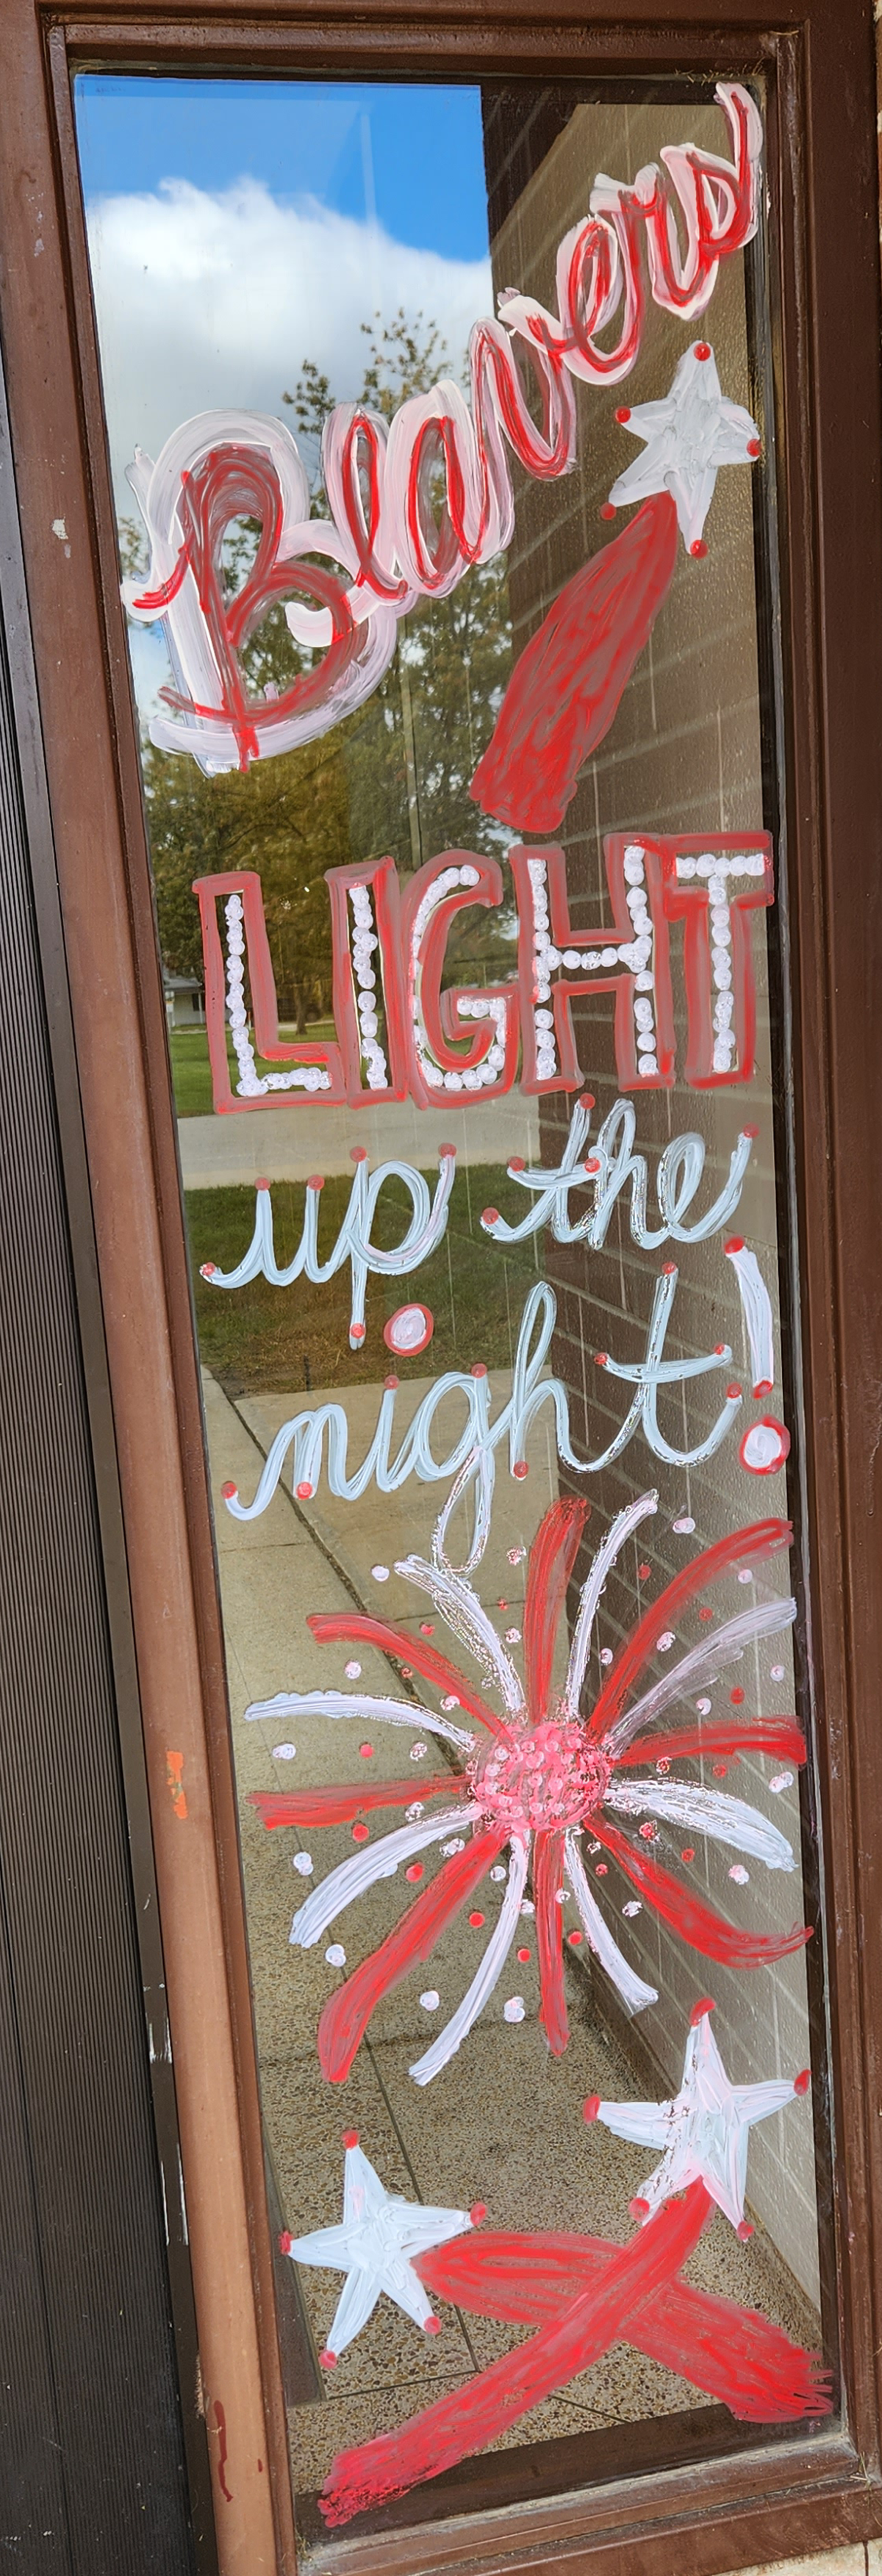 Beavers
LIGHT
up the
night!